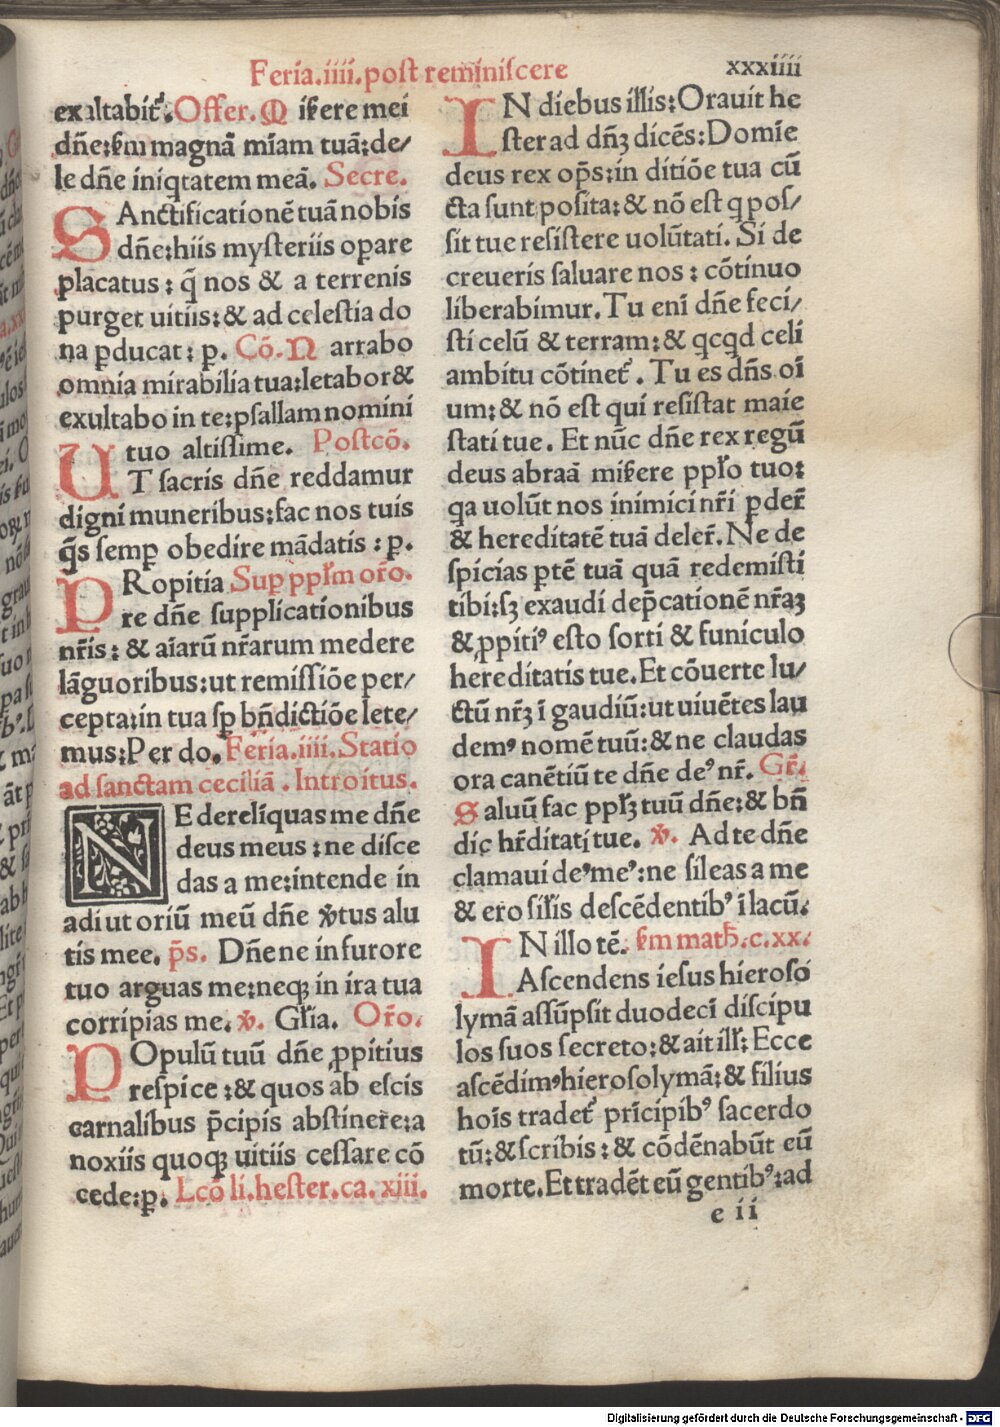 Feria.iiii.post reminiscere
xxxiiii
exaltabit᷑. Offer. M iẜere mei
dñe:ẜm magnã miam tuã:de/
le dñe iniqtatem meã. Secre.
SAnctificationẽ tuã nobis
dñe:hiis mysteriis opare
placatus : q̃ nos & a terrenis
purget uitiis:& ad celestia do
na ꝑducat: p. Cõ. N arrabo
omnia mirabilia tua:letabor &
exultabo in te:psallam nomini
tuo altissime. Postcõ.
UT sacris dñe reddamur
digni muneribus:fac nos tuis
q̃s semꝑ obedire mãdatis : p.
PRopitia Suꝑ ppl̃m or̃o.
re dñe supplicationibus
nr̃is : & aiarũ nr̃arum medere
lãguoribus:ut remissiõe per/
cepta:in tua sꝑ bñdictiõe lete/
mus:Per do. Feria.iiii.Statio
ad sanctam ceciliã . Introitus.
NE derelíquas me dñe
deus meus : ne disce
das a me:intende in
adiutoriũ meũ dñe ꝟtus alu
tis mee. p̃s. Dñe ne in furore
tuo arguas me:neqꝫ in ira tua
corripias me. ꝟ. Gl̃ia. Or̃o.
POpulũ tuũ dñe ꝓpitius
respice :& quos ab escis
carnalibus p̃cipis abstinere:a
noxiis quoqꝫ uitiis cessare cõ
cede:p. Lcõ li.hester.ca. xiii.
IN diebus illis:Orauit he
ster ad dñꝫ dicẽs:Domie
deus rex op̃s:in ditiõe tua cũ
cta sunt posita:& nõ est q pos/
sit tue resistere uolũtati. Si de
creueris saluare nos : cõtinuo
liberabimur. Tu eni dñe feci/
sti celũ & terram:& qcqd celi
ambitu cõtinet᷑ . Tu es dñs oĩ
um:& nõ est qui resistat maie
stati tue . Et nũc dñe rex regũ
deus abraã miẜere ppl̃o tuo:
qa uolũt nos inimici nr̃i ꝑder̃
& hereditatẽ tuã deler̃. Ne de
spicias ꝑtẽ tuã quã redemisti
tibi:sꝫ exaudi dep̃cationẽ nr̃aꝫ
& ꝓpitiꝰ esto sorti & funiculo
hereditatis tue. Et cõuerte lu/
ctũ nr̃ꝫ ĩ gaudiũ:ut uiuẽtes lau
demꝰ nomẽ tuũ:& ne claudas
ora canẽtiũ te dñe deꝰ nr̃. Gr̃.
Saluũ fac ppl̃ꝫ tuũ dñe:& bñ
dic hr̃ditati tue. ꝟ. Ad te dñe
clamaui deꝰmeꝰ:ne sileas a me
& ero sil̃is descẽdentibꝰ ĩ lacũ.
IN illo tẽ. ẜm math̃.c.xx.
Ascendens iesus hieroso
lymã assũpsit duodecĩ discipu
los suos secreto:& ait ill̃:Ecce
ascẽdimꝰhierosolymã:& filius
hoĩs tradet᷑ prĩcipibꝰ sacerdo
tũ:&scribis : & cõdẽnabũt eũ
morte.Et tradẽt eũ gentibꝰ:ad
e ii
Digitalisierung gefördert durch die Deutsche Forschungsgemeinschaft - DFG